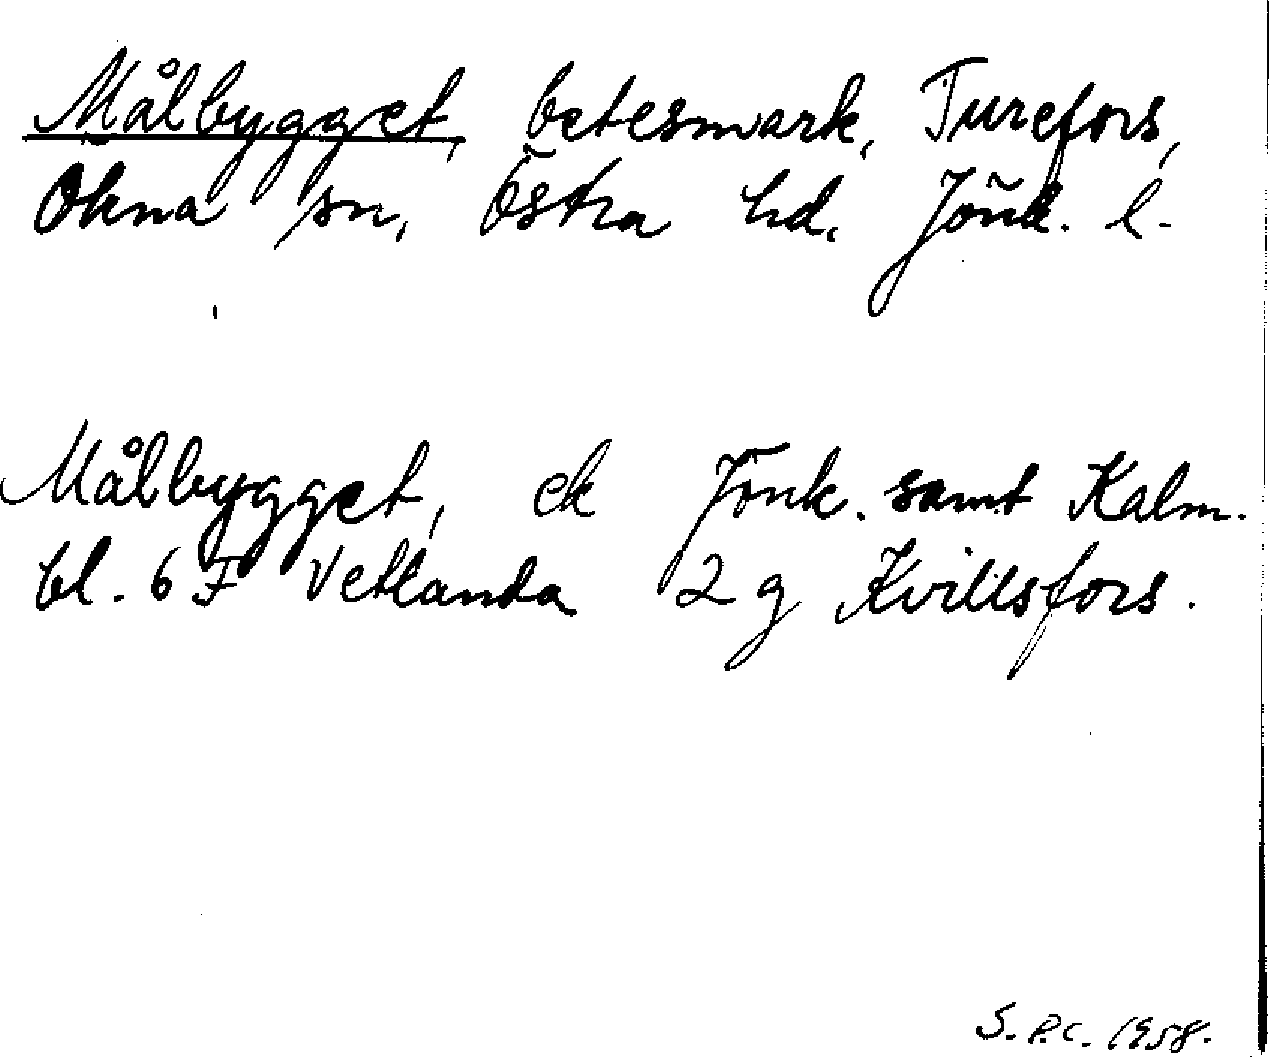 Målbygget, betesmark, Turefors,
Ökna sn, Östra hd. Jönk. l.
Målbygget, ek Jönk. samt Kalm.
bl. 6 F Vetlanda 2 g Kvillsfors.
S.P.C. 1958.